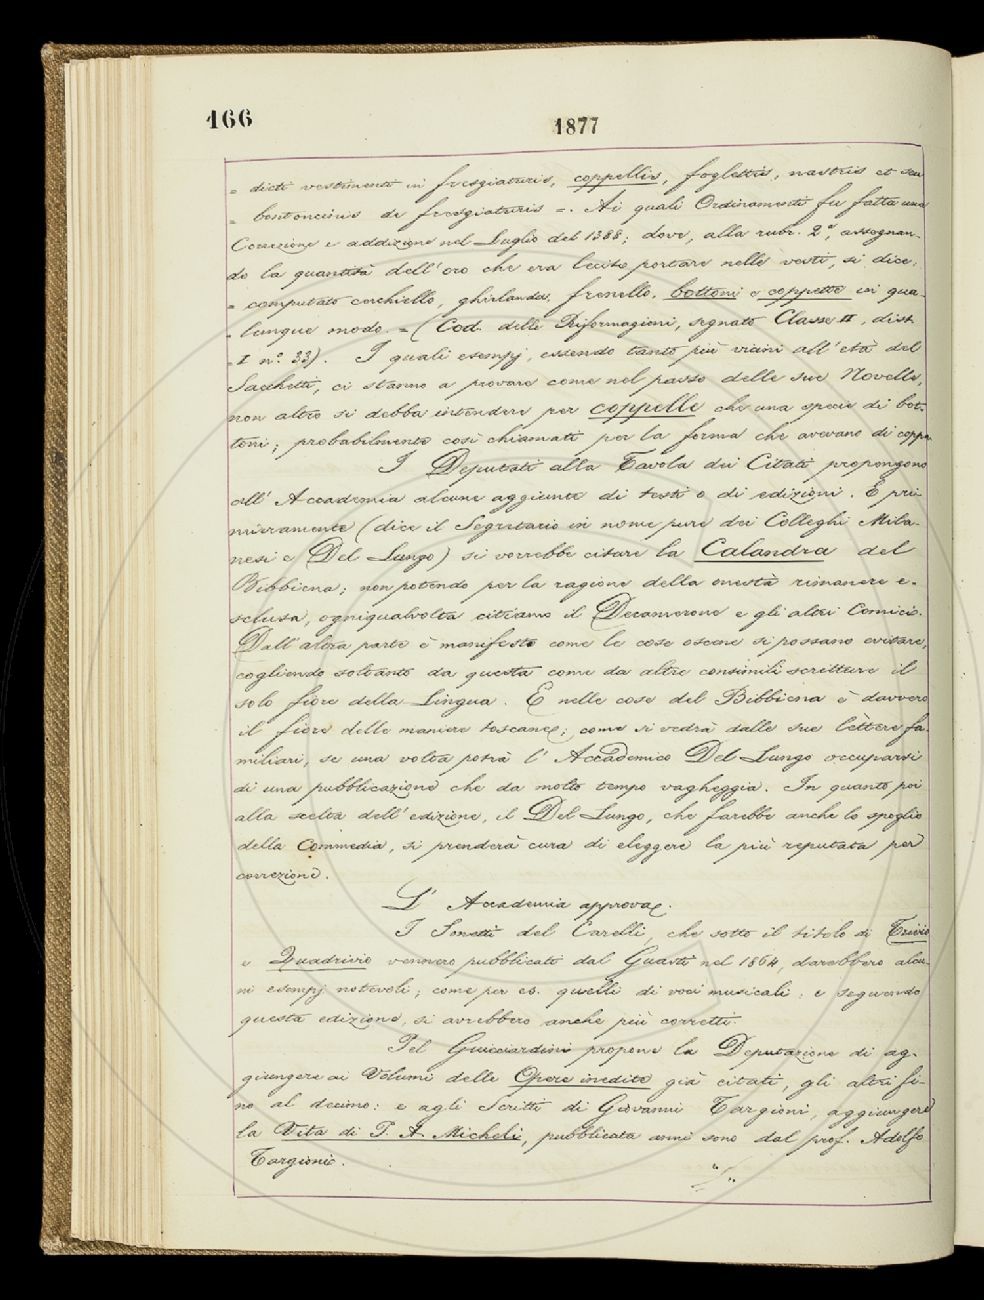 166
1877
= dicti vestimenti in fresgiaturis, coppellis, foglettis, nastris et seu
= bontoncinis de fresgiaturis =. Ai quali Ordinamenti fu fatta una
Correzione e addizione nel Luglio del 1388; dove, alla rubr. 2ª, assegnan-
do la quantità dell'oro che era lecito portare nelle vesti, si dice:
= computato cerchiello, ghirlanda, frenello, bottoni e coppette in qua-
= lunque modo. = (Cod. delle Riformagioni, segnato Classe II, dist.
= I n.° 33). I quali esempj, essendo tanto più vicini all'età del
Sacchetti, ci stanno a provare come nel passo delle sue Novelle,
non altro si debba intendere per coppelle che una specie di bot-
toni; probabilmente così chiamati per la forma che avevano di coppa.
I Deputati alla Tavola dei Citati propongono
all'Accademia alcune aggiunte di testi o di edizioni. E pri-
mieramente (dice il Segretario in nome pure dei Colleghi Mila-
nesi e Del Lungo) si vorrebbe citare la Calandra del
Bibbiena; non potendo per la ragione della onestà rimanere e-
sclusa, ogniqualvolta citiamo il Decamerone e gli altri Comici.
Dall'altra parte è manifesto come le cose oscene si possano evitare,
cogliendo soltanto da questa come da altre consimili scritture il
solo fiore della Lingua. E nelle cose del Bibbiena è davvero
il fiore delle maniere toscane; come si vedrà dalle sue lettere fa-
miliari, se una volta potrà l'Accademico Del Lungo occuparsi
di una pubblicazione che da molto tempo vagheggia. In quanto poi
alla scelta dell'edizione, il Del Lungo, che farebbe anche lo spoglio
della Commedia, si prenderà cura di eleggere la più reputata per
correzione.
L'Accademia approva.
I Sonetti del Carelli, che sotto il titolo di Trivio
e Quadrivio vennero pubblicati dal Guasti nel 1864, darebbero alcu-
ni esempj notevoli; come per es. quelli di voci musicali: e seguendo
questa edizione, si avrebbero anche più corretti.
Pel Guicciardini propone la Deputazione di ag-
giungere ai Volumi delle Opere inedite già citati, gli altri fi-
no al decimo: e agli Scritti di Giovanni Targioni, aggiungere
la Vita di P. A. Micheli, pubblicata anni sono dal prof. Adolfo
Targioni.